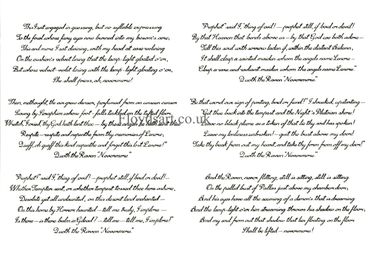 This I sat engaged in guessing, but no syllable expressing
To the fowl whose fiery eyes now burned into my bosom's core;
This and more I sat divining, with my head at ease reclining
On the cushion's velvet lining that the lamp-light gloated o'er,
But whose velvet violet lining with the lamp-light gloating o'er,
She shall press, ah, nevermore!
Then, methought, the air grew denser, perfumed from an unseen censer
Swung by Seraphim whose foot-falls tinkled on the tufted floor.
"Wretch," I cried, "thy God hath lent thee — by these
Respite — respite and nepenthe from thy memories of Lenore;
Quaff, oh quaff this kind nepenthe and forget this lost Lenore!"
Quoth the Raven "Nevermore."
"Prophet!" said I, "thing of evil! — prophet still, if bird or devil! —
Whether Tempter sent, or whether tempest tossed thee here ashore,
Desolate yet all undaunted, on this desert land enchanted —
On this home by Horror haunted — tell me truly, I implore —
Is there — is there balm in Gilead? — tell me — tell me, I implore!"
Quoth the Raven "Nevermore."
"Prophet!" said I, "thing of evil! — prophet still, if bird or devil!
By that Heaven that bends above us — by that God we both adore —
Tell this soul with sorrow laden if, within the distant Aidenn,
It shall clasp a sainted maiden whom the angels name Lenore —
Clasp a rare and radiant maiden whom the angels name Lenore."
Quoth the Raven "Nevermore."
"Be that word our sign of parting, bird or fiend!" I shrieked, upstarting —
"Get thee back into the tempest and the Night's Plutonian shore!
Leave no black plume as a token of that lie thy soul hath spoken!
Leave my loneliness unbroken! — quit the bust above my door!
Take thy beak from out my heart, and take thy form from off my door!"
Quoth the Raven "Nevermore."
And the Raven, never flitting, still is sitting, still is sitting
On the pallid bust of Pallas just above my chamber door;
And his eyes have all the seeming of a demon's that is dreaming,
And the lamp-light o'er him streaming throws his shadow on the floor;
And my soul from out that shadow that lies floating on the floor
Shall be lifted — nevermore!
floydsart.co.uk